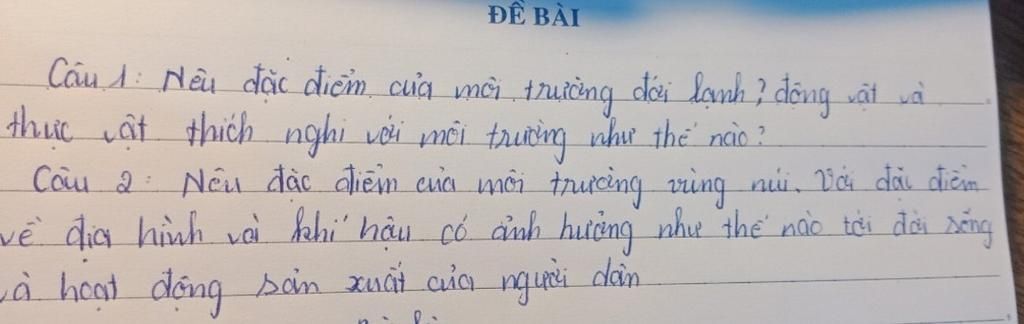 ĐỀ BÀI
Câu 1: Nêu đặc điểm của môi trường đới lạnh? động vật và
thực vật thích nghi với môi trường như thế nào?
Câu 2: Nêu đặc điểm của môi trường vùng núi. Với đặc điểm
về địa hình và khí hậu có ảnh hưởng như thế nào tới đời sống
và hoạt động sản xuất của người dân